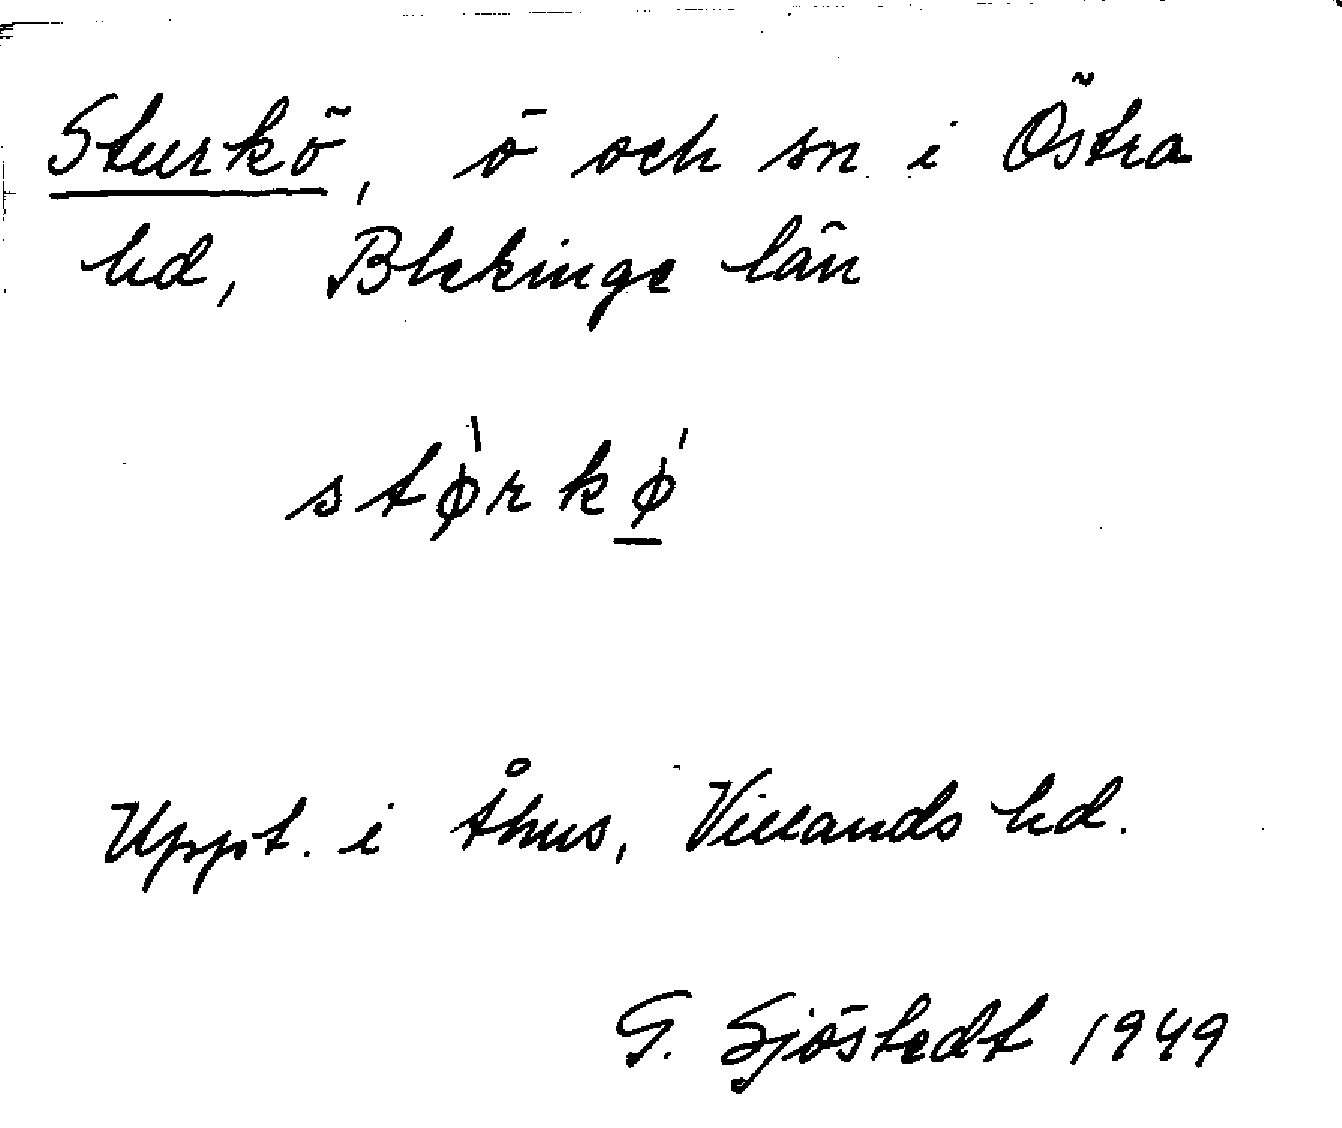 Sturkö, ö och sn i Östra
hd, Blekinge län
stø̀rkǿ̲
Uppt. i Åhus, Villands hd.
G. Sjöstedt 1949